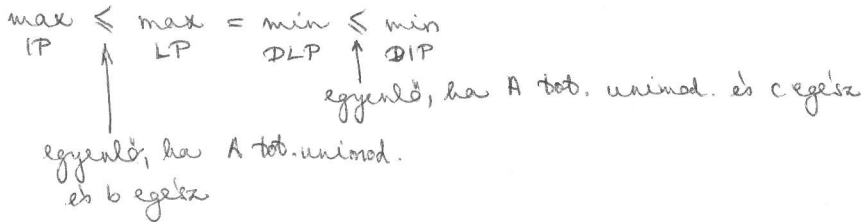 max ≤ max = min ≤ min
IP LP DLP DIP
egyenlő, ha A tot. unimod. és c egész
egyenlő, ha A tot. unimod.
és b egész